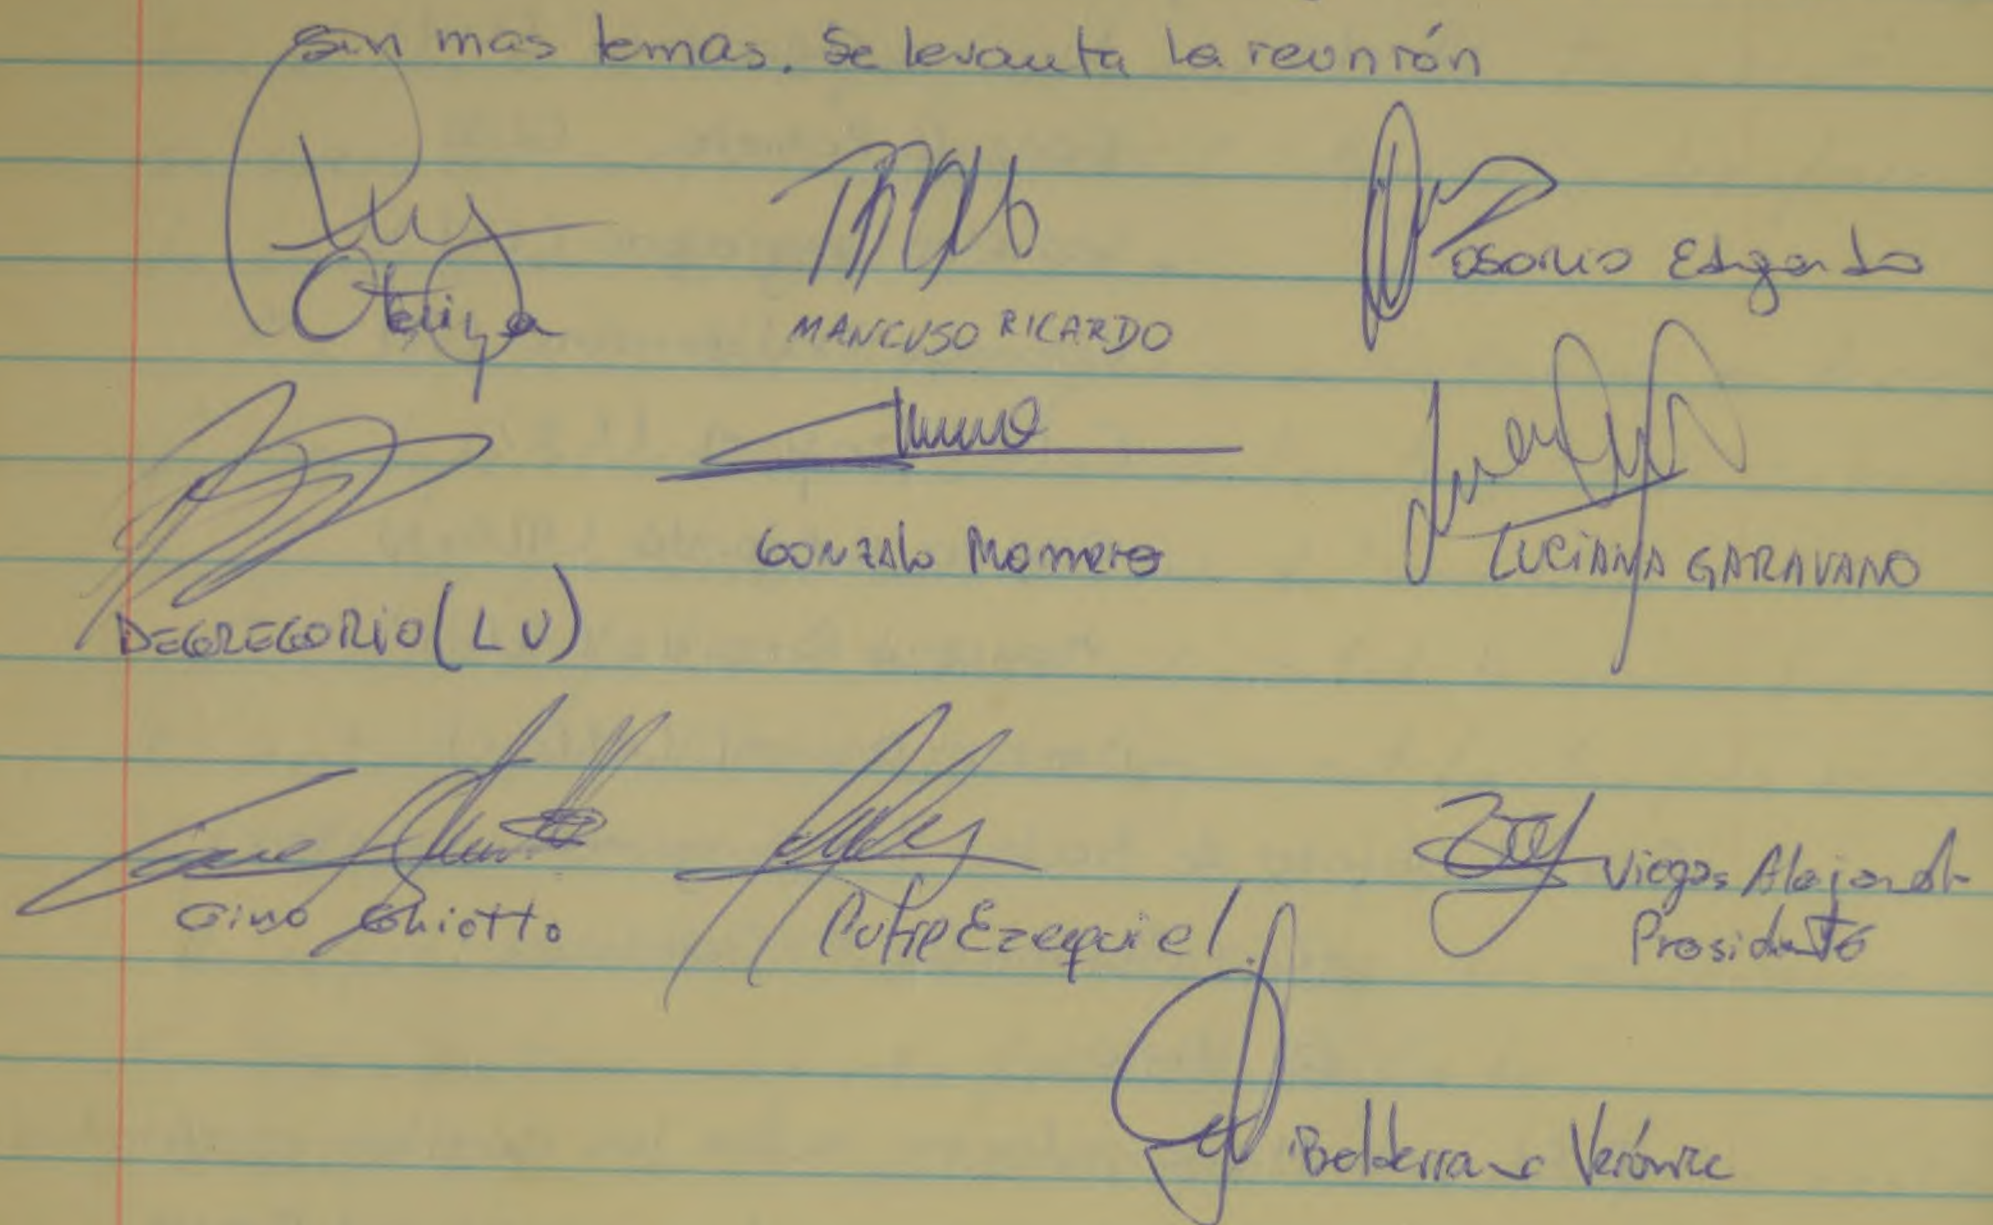 sin mas temas. Se levanta la reunión
Oteiza
MANCUSO RICARDO
OSORIO Edgardo
DEGREGORIO (LV)
GONZALO
LUCIANA GARAVANO
Gino Ghiotto
Ezequiel
Viegas Alejandro
Presidente
Verónica